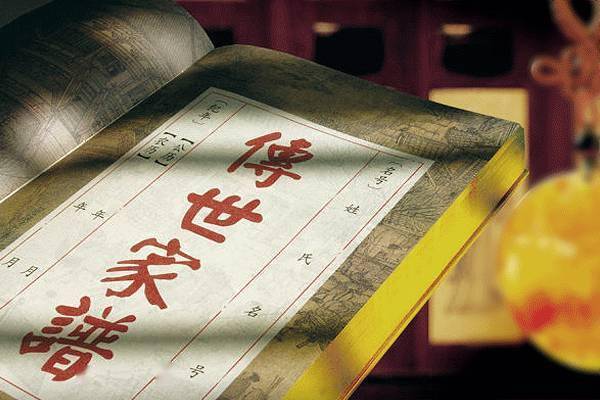 （名号）
姓氏名号
傳世家譜
（纪年）
【公历】年月
【农历】年月